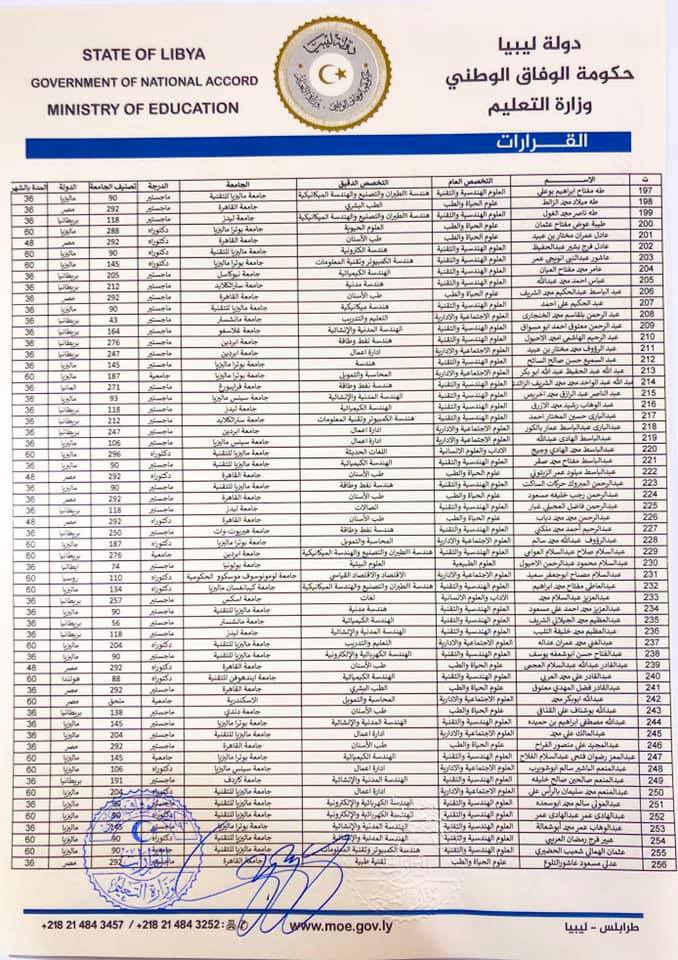 STATE OF LIBYA
GOVERNMENT OF NATIONAL ACCORD
MINISTRY OF EDUCATION
دولة ليبيا
حكومة الوفاق الوطني
وزارة التعليم
القرارات
ت الاســـم التخصص العام التخصص الدقيق الجامعة الدرجة تصنيف الجامعة الدولة المدة بالشهر
197 طه مفتاح ابراهيم بوعلي العلوم الهندسية والتقنية هندسة الطيران والتصنيع والهندسة الميكانيكية جامعة ماليزيا للتقنية ماجستير 90 ماليزيا 36
198 طه ميلاد محمد الزالط علوم الحياة والطب الطب البشري جامعة القاهرة ماجستير 292 مصر 36
199 طه ناصر محمد الغول العلوم الهندسية والتقنية هندسة الطيران والتصنيع والهندسة الميكانيكية جامعة ليدز ماجستير 118 بريطانيا 36
200 طيبة عوض مفتاح عثمان علوم الحياة والطب العلوم الحيوية جامعة بوترا ماليزيا دكتوراه 288 ماليزيا 60
201 عادل عمران مختار بن عبيد علوم الحياة والطب طب الأسنان جامعة القاهرة دكتوراه 292 مصر 48
202 عادل فرج بشير عبدالحفيظ العلوم الهندسية والتقنية هندسة الكترونية جامعة ماليزيا للتقنية دكتوراه 90 ماليزيا 60
203 عاشور عبدالنبي انويجي عمر العلوم الهندسية والتقنية هندسة الكمبيوتر وتقنية المعلومات جامعة بوترا ماليزيا دكتوراه 145 ماليزيا 60
204 عامر محمد مفتاح العبان العلوم الهندسية والتقنية الهندسة الكيميائية جامعة نيوكاسل ماجستير 205 بريطانيا 36
205 عباس احمد محمد عبدالله العلوم الهندسية والتقنية هندسة مدنية جامعة ستراثكلايد ماجستير 212 بريطانيا 36
206 عبد الباسط عبدالحكيم محمد الشريف علوم الحياة والطب طب الأسنان جامعة القاهرة ماجستير 292 مصر 36
207 عبد الحكيم علي احمد العلوم الهندسية والتقنية هندسة ميكانيكية جامعة ماليزيا للتقنية ماجستير 90 ماليزيا 36
208 عبد الرحمن بلقاسم محمد العلوم الاجتماعية والادارية التعليم والتدريب جامعة مانشستر ماجستير 43 بريطانيا 36
209 عبد الرحمن معتوق احمد ابو مسواق العلوم الهندسية والتقنية الهندسة المدنية والإنشائية جامعة غلاسغو ماجستير 164 بريطانيا 36
210 عبد الرحيم الهاشمي امحمد الاحيول العلوم الهندسية والتقنية هندسة نفط وطاقة جامعة ابردين ماجستير 276 بريطانيا 36
211 عبد الرؤوف محمد مختار بن عبيد العلوم الاجتماعية والادارية ادارة اعمال جامعة ابردين ماجستير 247 بريطانيا 36
212 عبد السميع حسن صالح السائح العلوم الهندسية والتقنية هندسة جامعة بوترا ماليزيا ماجستير 145 ماليزيا 36
213 عبد الله عبد الحفيظ عبد الله ابو بكر العلوم الاجتماعية والادارية المحاسبة والتمويل جامعة بوترا ماليزيا جامعية 187 ماليزيا 60
214 عبد الله عبد الواحد محمد محمد الشريف العلوم الهندسية والتقنية هندسة نفط وطاقة جامعة فرايبورغ ماجستير 271 المانيا 36
215 عبد الناصر عبد الرازق محمد اخريص العلوم الهندسية والتقنية الهندسة المدنية والإنشائية جامعة سينس ماليزيا ماجستير 93 ماليزيا 36
216 عبد الوهاب رشيد محمد الازرق العلوم الهندسية والتقنية الهندسة الكيميائية جامعة ليدز ماجستير 118 بريطانيا 36
217 عبدالباري حسين المختار احمد العلوم الهندسية والتقنية هندسة الكمبيوتر وتقنية المعلومات جامعة ستراثكلايد ماجستير 212 بريطانيا 36
218 عبدالباري عبدالباسط عمار بالكور العلوم الاجتماعية والادارية ادارة اعمال جامعة ابردين ماجستير 247 بريطانيا 36
219 عبدالباسط الهادي عبدالله العلوم الاجتماعية والادارية ادارة اعمال جامعة سينس ماليزيا ماجستير 106 ماليزيا 36
220 عبدالباسط محمد الهادي وجيج الاداب والعلوم الانسانية اللغات الحديثة جامعة ماليزيا للتقنية دكتوراه 296 ماليزيا 60
221 عبدالباسط مفتاح محمد صقر العلوم الهندسية والتقنية الهندسة الكيميائية جامعة ماليزيا للتقنية ماجستير 90 ماليزيا 36
222 عبدالباسط ميلود عمر الزيتوني علوم الحياة والطب طب الأسنان جامعة القاهرة دكتوراه 292 مصر 48
223 عبدالرحمن المبروك حركات الساكت العلوم الهندسية والتقنية هندسة نفط وطاقة جامعة ماليزيا للتقنية ماجستير 90 ماليزيا 36
224 عبدالرحمن رجب خليفه مسعود علوم الحياة والطب طب الأسنان جامعة القاهرة ماجستير 292 مصر 36
225 عبدالرحمن فاضل العجيلي غبار العلوم الهندسية والتقنية اتصالات جامعة ليدز ماجستير 118 بريطانيا 36
226 عبدالرحمن محمد محمد دياب علوم الحياة والطب طب الأسنان جامعة القاهرة دكتوراه 292 مصر 48
227 عبدالرحيم احمد محمد ملكي العلوم الهندسية والتقنية هندسة نفط وطاقة جامعة هيريوت وات ماجستير 250 بريطانيا 36
228 عبدالرؤوف عبدالله محمد سالم العلوم الاجتماعية والادارية المحاسبة والتمويل جامعة بوترا ماليزيا دكتوراه 187 ماليزيا 60
229 عبدالسلام صلاح عبدالسلام العوامي العلوم الهندسية والتقنية هندسة الطيران والتصنيع والهندسة الميكانيكية جامعة ابردين جامعية 276 بريطانيا 60
230 عبدالسلام محمود عبدالرحمن الاحيول العلوم الطبيعية العلوم البيئية جامعة بولونيا ماجستير 74 ايطاليا 36
231 عبدالسلام مصباح ابوجعفر سعيد العلوم الاجتماعية والادارية الاقتصاد والاقتصاد القياسي جامعة لومونوسوف موسكوو الحكومية دكتوراه 110 روسيا 60
232 عبدالعاطي مفتاح محمد ابراهيم العلوم الهندسية والتقنية هندسة الطيران والتصنيع والهندسة الميكانيكية جامعة كيبانغسان ماليزيا دكتوراه 134 ماليزيا 60
233 عبدالعزيز عبدالسلام محمد الاداب والعلوم الانسانية لغات جامعة اسكس ماجستير 257 بريطانيا 36
234 عبدالعزيز محمد احمد علي مسعود العلوم الهندسية والتقنية هندسة مدنية جامعة ماليزيا للتقنية ماجستير 90 ماليزيا 36
235 عبدالعظيم محمد الجيلاني الشريف العلوم الهندسية والتقنية الهندسة الكيميائية جامعة مانشستر ماجستير 56 بريطانيا 36
236 عبدالعظيم محمد خليفة التليب العلوم الهندسية والتقنية الهندسة المدنية والإنشائية جامعة ليدز ماجستير 118 بريطانيا 36
237 عبدالغني محمد عمران عدالله العلوم الاجتماعية والادارية التعليم والتدريب جامعة ماليزيا للتقنية دكتوراه 204 ماليزيا 60
238 عبدالفتاح حسن ابوشعفه يوسف العلوم الهندسية والتقنية الهندسة الكهربائية والإلكترونية جامعة ماليزيا للتقنية ماجستير 90 ماليزيا 36
239 عبدالقادر عبدالله عبدالسلام العجمي علوم الحياة والطب طب الأسنان جامعة القاهرة دكتوراه 292 مصر 48
240 عبدالقادر علي محمد العربي العلوم الهندسية والتقنية الهندسة الكيميائية جامعة ايندهوفن للتقنية دكتوراه 88 هولندا 60
241 عبدالقادر فضل المهدي معتوق علوم الحياة والطب الطب البشري جامعة القاهرة ماجستير 292 مصر 36
242 عبدالله ابوبكر محمد العلوم الاجتماعية والادارية المحاسبة والتمويل الاسكندرية جامعية ملحق مصر 60
243 عبدالله بوشناف علي القذافي علوم الحياة والطب طب الأسنان جامعة دندي ماجستير 138 بريطانيا 36
244 عبدالله مصطفى ابراهيم بن حميده العلوم الهندسية والتقنية الهندسة المدنية والإنشائية جامعة بوترا ماليزيا ماجستير 145 ماليزيا 36
245 عبدالمالك علي محمد العلوم الاجتماعية والادارية ادارة اعمال جامعة ماليزيا للتقنية ماجستير 204 ماليزيا 36
246 عبدالمجيد علي منصور الفراح علوم الحياة والطب طب الأسنان جامعة القاهرة ماجستير 292 مصر 36
247 عبدالمعز رضوان فتحي عبدالسلام الفلاح العلوم الهندسية والتقنية الهندسة الكيميائية جامعة بوترا ماليزيا جامعية 145 ماليزيا 60
248 عبدالمنعم الباشير سالم ابوشويرب العلوم الاجتماعية والادارية ادارة اعمال جامعة سينس ماليزيا دكتوراه 106 ماليزيا 60
249 عبدالمنعم صالحين صالح خليفه العلوم الهندسية والتقنية الهندسة المدنية والإنشائية جامعة كاردف ماجستير 191 بريطانيا 36
250 عبدالمنعم محمد سليمان بالرأس علي العلوم الاجتماعية والادارية ادارة اعمال جامعة ماليزيا للتقنية دكتوراه 204 ماليزيا 60
251 عبدالمولى سالم محمد ابوسعده العلوم الهندسية والتقنية الهندسة الكهربائية والإلكترونية جامعة ماليزيا للتقنية ماليزيا 36
252 عبدالهادي عمر عبدالهادي عمر العلوم الهندسية والتقنية الهندسة الكهربائية والإلكترونية جامعة ماليزيا للتقنية ماليزيا 60
253 عبدالوهاب عمر محمد ابوشعالة العلوم الهندسية والتقنية الهندسة المدنية والإنشائية جامعة بوترا ماليزيا ماليزيا 36
254 عبير فرج رمضان العريبي العلوم الهندسية والتقنية جامعة ماليزيا للتقنية دكتوراه 90 ماليزيا 60
255 عثمان الهمالي شعيب الحضيري العلوم الهندسية والتقنية هندسة الكمبيوتر وتقنية المعلومات جامعة ماليزيا للتقنية 90 ماليزيا 60
256 عدلي مسعود عاشور علوم الحياة والطب تقنية طبية جامعة القاهرة 292 مصر 36
وزارة التعليم
+218 21 484 3457 / +218 21 484 3252 :
www.moe.gov.ly
طرابلس - ليبيا